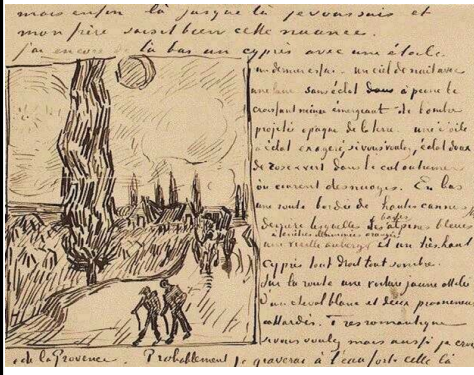 mais enfin là jusque là je voussais et
mon frère sait bien cette nuance.
J'ai encore de là bas un cyprès avec une étoile.
un dernier essai - un ciel de nuit avec
une lune sans éclat à peine le
croissant mince émergeant de l'ombre
projetée opaque de la terre. une étoile
à éclat exagéré, si vous voulez, éclat doux
de rose & vert dans le ciel outremer
où courent des nuages. En bas
une route bordée de hautes cannes jaunes
derrière lesquelles les basses alpines bleues
une vieille auberge à fenêtres illuminées orangées et un très haut
cyprès tout droit tout sombre.
Sur la route une voiture jaune attelée
d'un cheval blanc et deux promeneurs
attardés. Très romantique
si vous voulez mais aussi je crois
de la Provence. Probablement je graverai à l'eau forte celle là